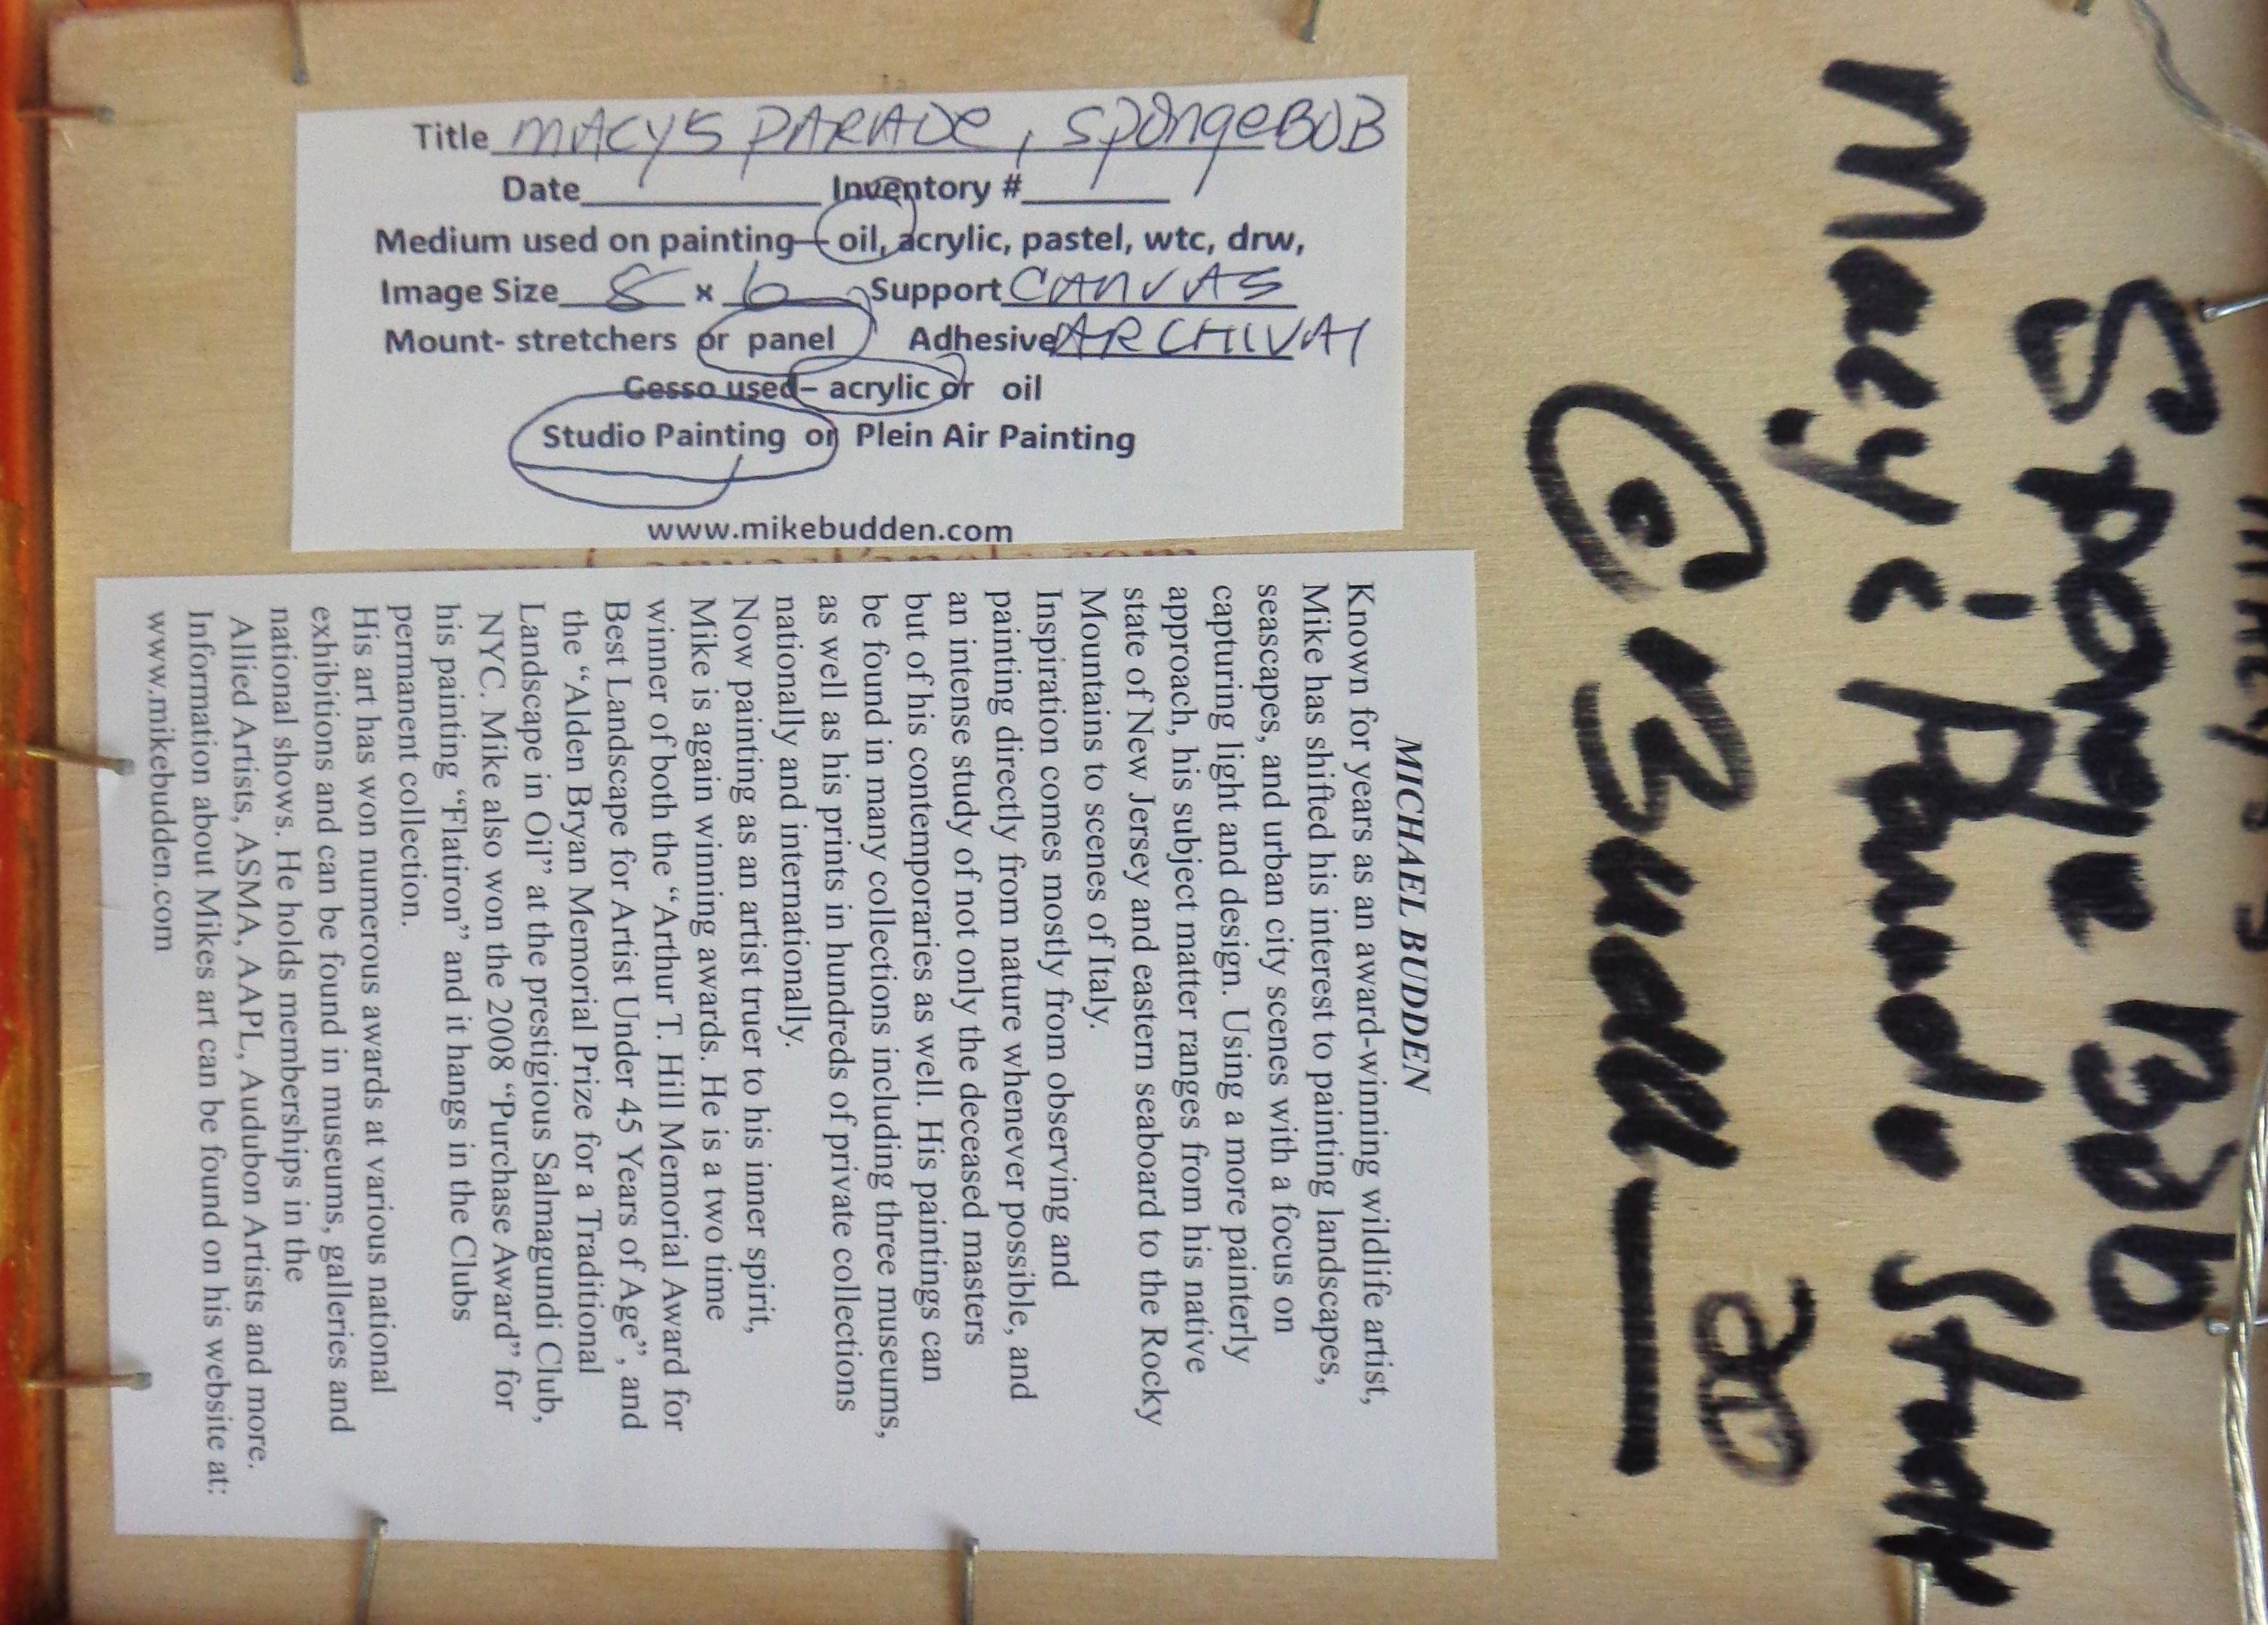 Title MACYS PARADE, SpongeBOB
Date Inventory #
Medium used on painting – oil, acrylic, pastel, wtc, drw,
Image Size 8 x 6 Support CANVAS
Mount- stretchers or panel Adhesive ARCHIVAl
Gesso used – acrylic or oil
Studio Painting or Plein Air Painting
www.mikebudden.com
MICHAEL BUDDEN
Known for years as an award-winning wildlife artist,
Mike has shifted his interest to painting landscapes,
seascapes, and urban city scenes with a focus on
capturing light and design. Using a more painterly
approach, his subject matter ranges from his native
state of New Jersey and eastern seaboard to the Rocky
Mountains to scenes of Italy.
Inspiration comes mostly from observing and
painting directly from nature whenever possible, and
an intense study of not only the deceased masters
but of his contemporaries as well. His paintings can
be found in many collections including three museums,
as well as his prints in hundreds of private collections
nationally and internationally.
Now painting as an artist truer to his inner spirit,
Mike is again winning awards. He is a two time
winner of both the “Arthur T. Hill Memorial Award for
Best Landscape for Artist Under 45 Years of Age”, and
the “Alden Bryan Memorial Prize for a Traditional
Landscape in Oil” at the prestigious Salmagundi Club,
NYC. Mike also won the 2008 “Purchase Award” for
his painting “Flatiron” and it hangs in the Clubs
permanent collection.
His art has won numerous awards at various national
exhibitions and can be found in museums, galleries and
national shows. He holds memberships in the
Allied Artists, ASMA, AAPL, Audubon Artists and more.
Information about Mikes art can be found on his website at:
www.mikebudden.com
Sponge Bob
Macy's Parade Study
© Budd